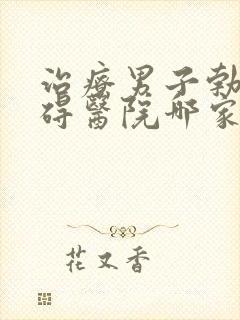 治疗男子勃
碍醫院哪家
花又香